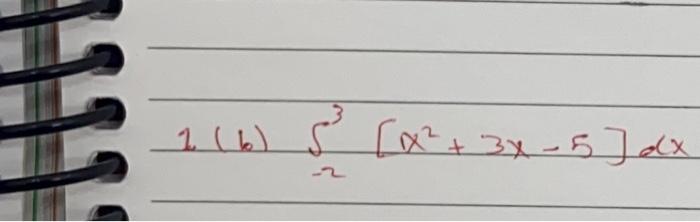 1 (b) ∫₋₂³ [x² + 3x - 5] dx